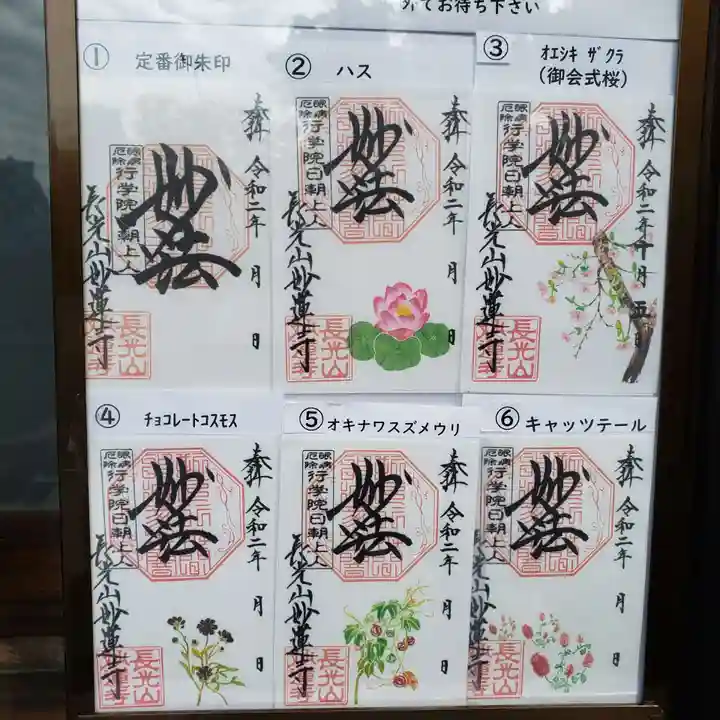 外でお待ち下さい
① 定番御朱印
奉拝
令和二年 月 日
妙法
眼病
厄除
行学院日朝上人
長光山妙蓮寺
長光山
② ハス
奉拝
令和二年 月 日
妙法
眼病
厄除
行学院日朝上人
長光山妙蓮寺
長光山
③ オエシキ ザクラ
(御会式桜)
奉拝
令和二年十月 日
妙法
眼病
厄除
行学院日朝上人
長光山妙蓮寺
長光山
④ チョコレートコスモス
奉拝
令和二年 月 日
妙法
眼病
厄除
行学院日朝上人
長光山妙蓮寺
長光山
⑤ オキナワスズメウリ
奉拝
令和二年 月 日
妙法
眼病
厄除
行学院日朝上人
長光山妙蓮寺
長光山
⑥ キャッツテール
奉拝
令和二年 月 日
妙法
眼病
厄除
行学院日朝上人
長光山妙蓮寺
長光山